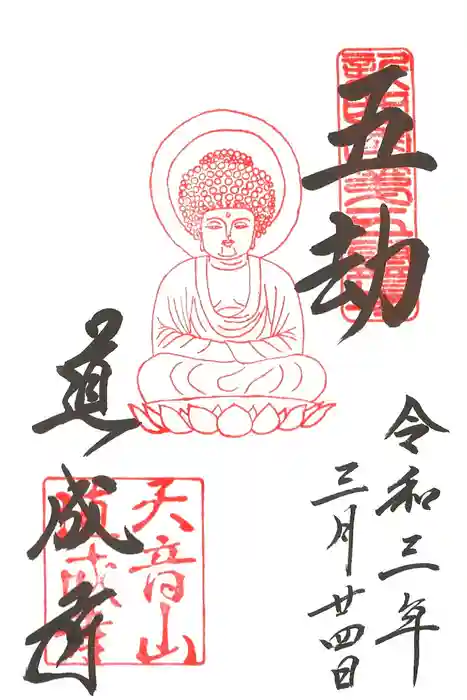 五劫
令和三年
三月廿四日
道成寺
天音山